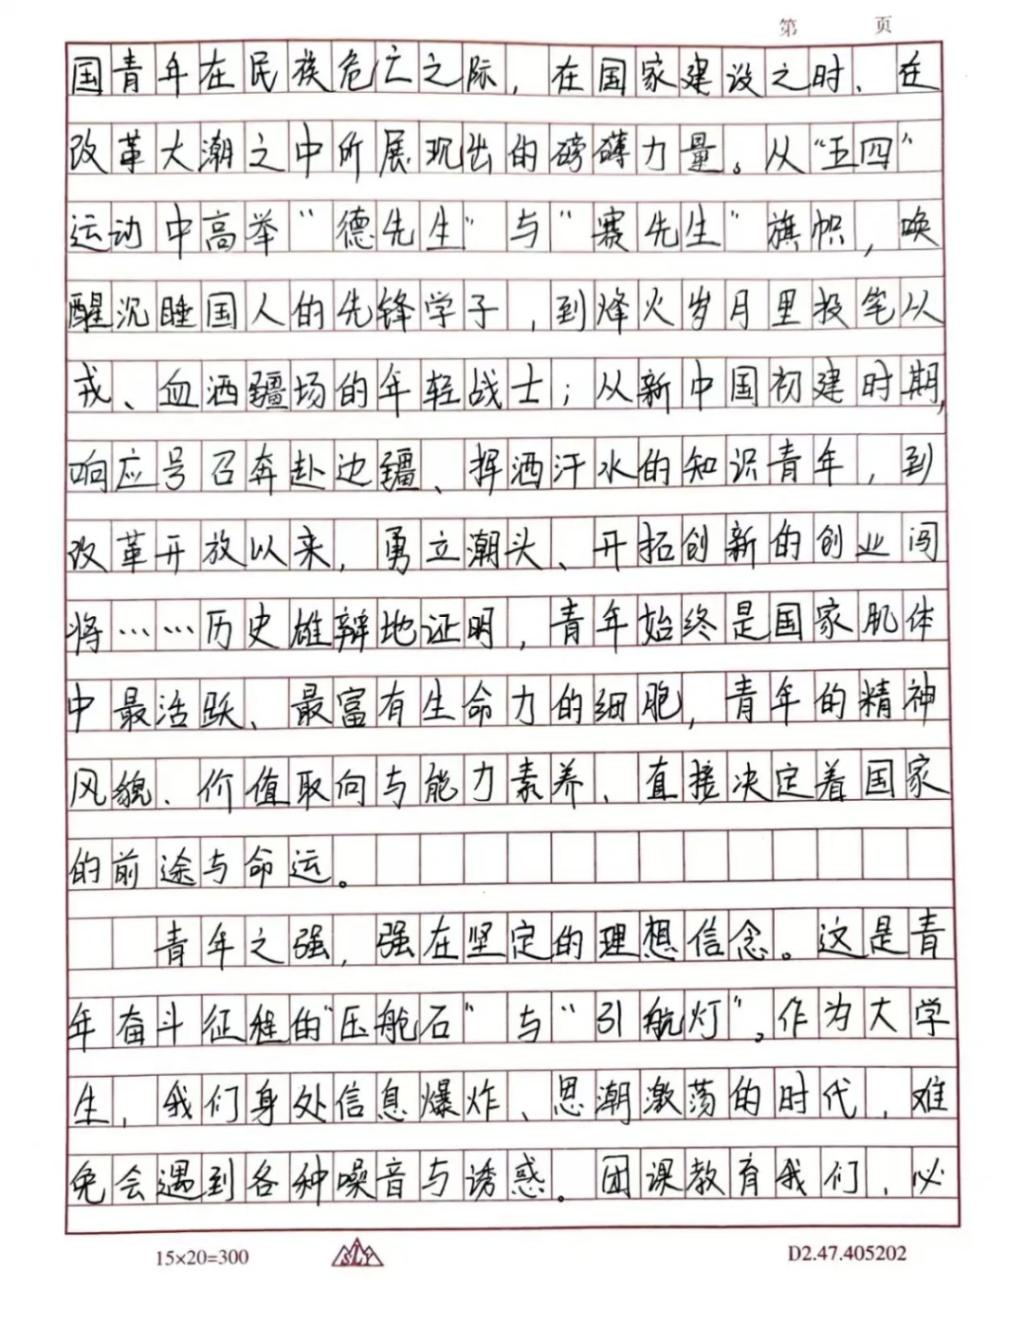 第 页
国青年在民族危亡之际,在国家建设之时、在
改革大潮之中所展现出的磅礴力量。从“五四”
运动中高举“德先生”与“赛先生”旗帜,唤
醒沉睡国人的先锋学子,到烽火岁月里投笔从
戎、血洒疆场的年轻战士;从新中国初建时期,
响应号召奔赴边疆、挥洒汗水的知识青年,到
改革开放以来,勇立潮头、开拓创新的创业闯
将……历史雄辩地证明,青年始终是国家肌体
中最活跃、最富有生命力的细胞,青年的精神
风貌、价值取向与能力素养、直接决定着国家
的前途与命运。
青年之强,强在坚定的理想信念。这是青
年奋斗征程的“压舱石”与“引航灯”。作为大学
生,我们身处信息爆炸、思潮激荡的时代,难
免会遇到各种噪音与诱惑。团课教育我们,必
15×20=300 SLY D2.47.405202